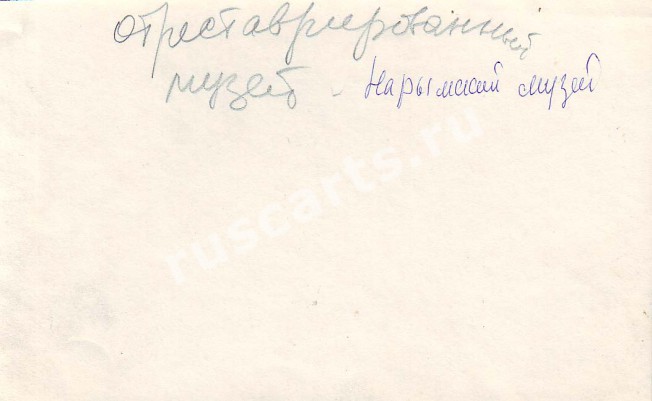 отреставрированный
музей - Нарымский музей
ruscarts.ru